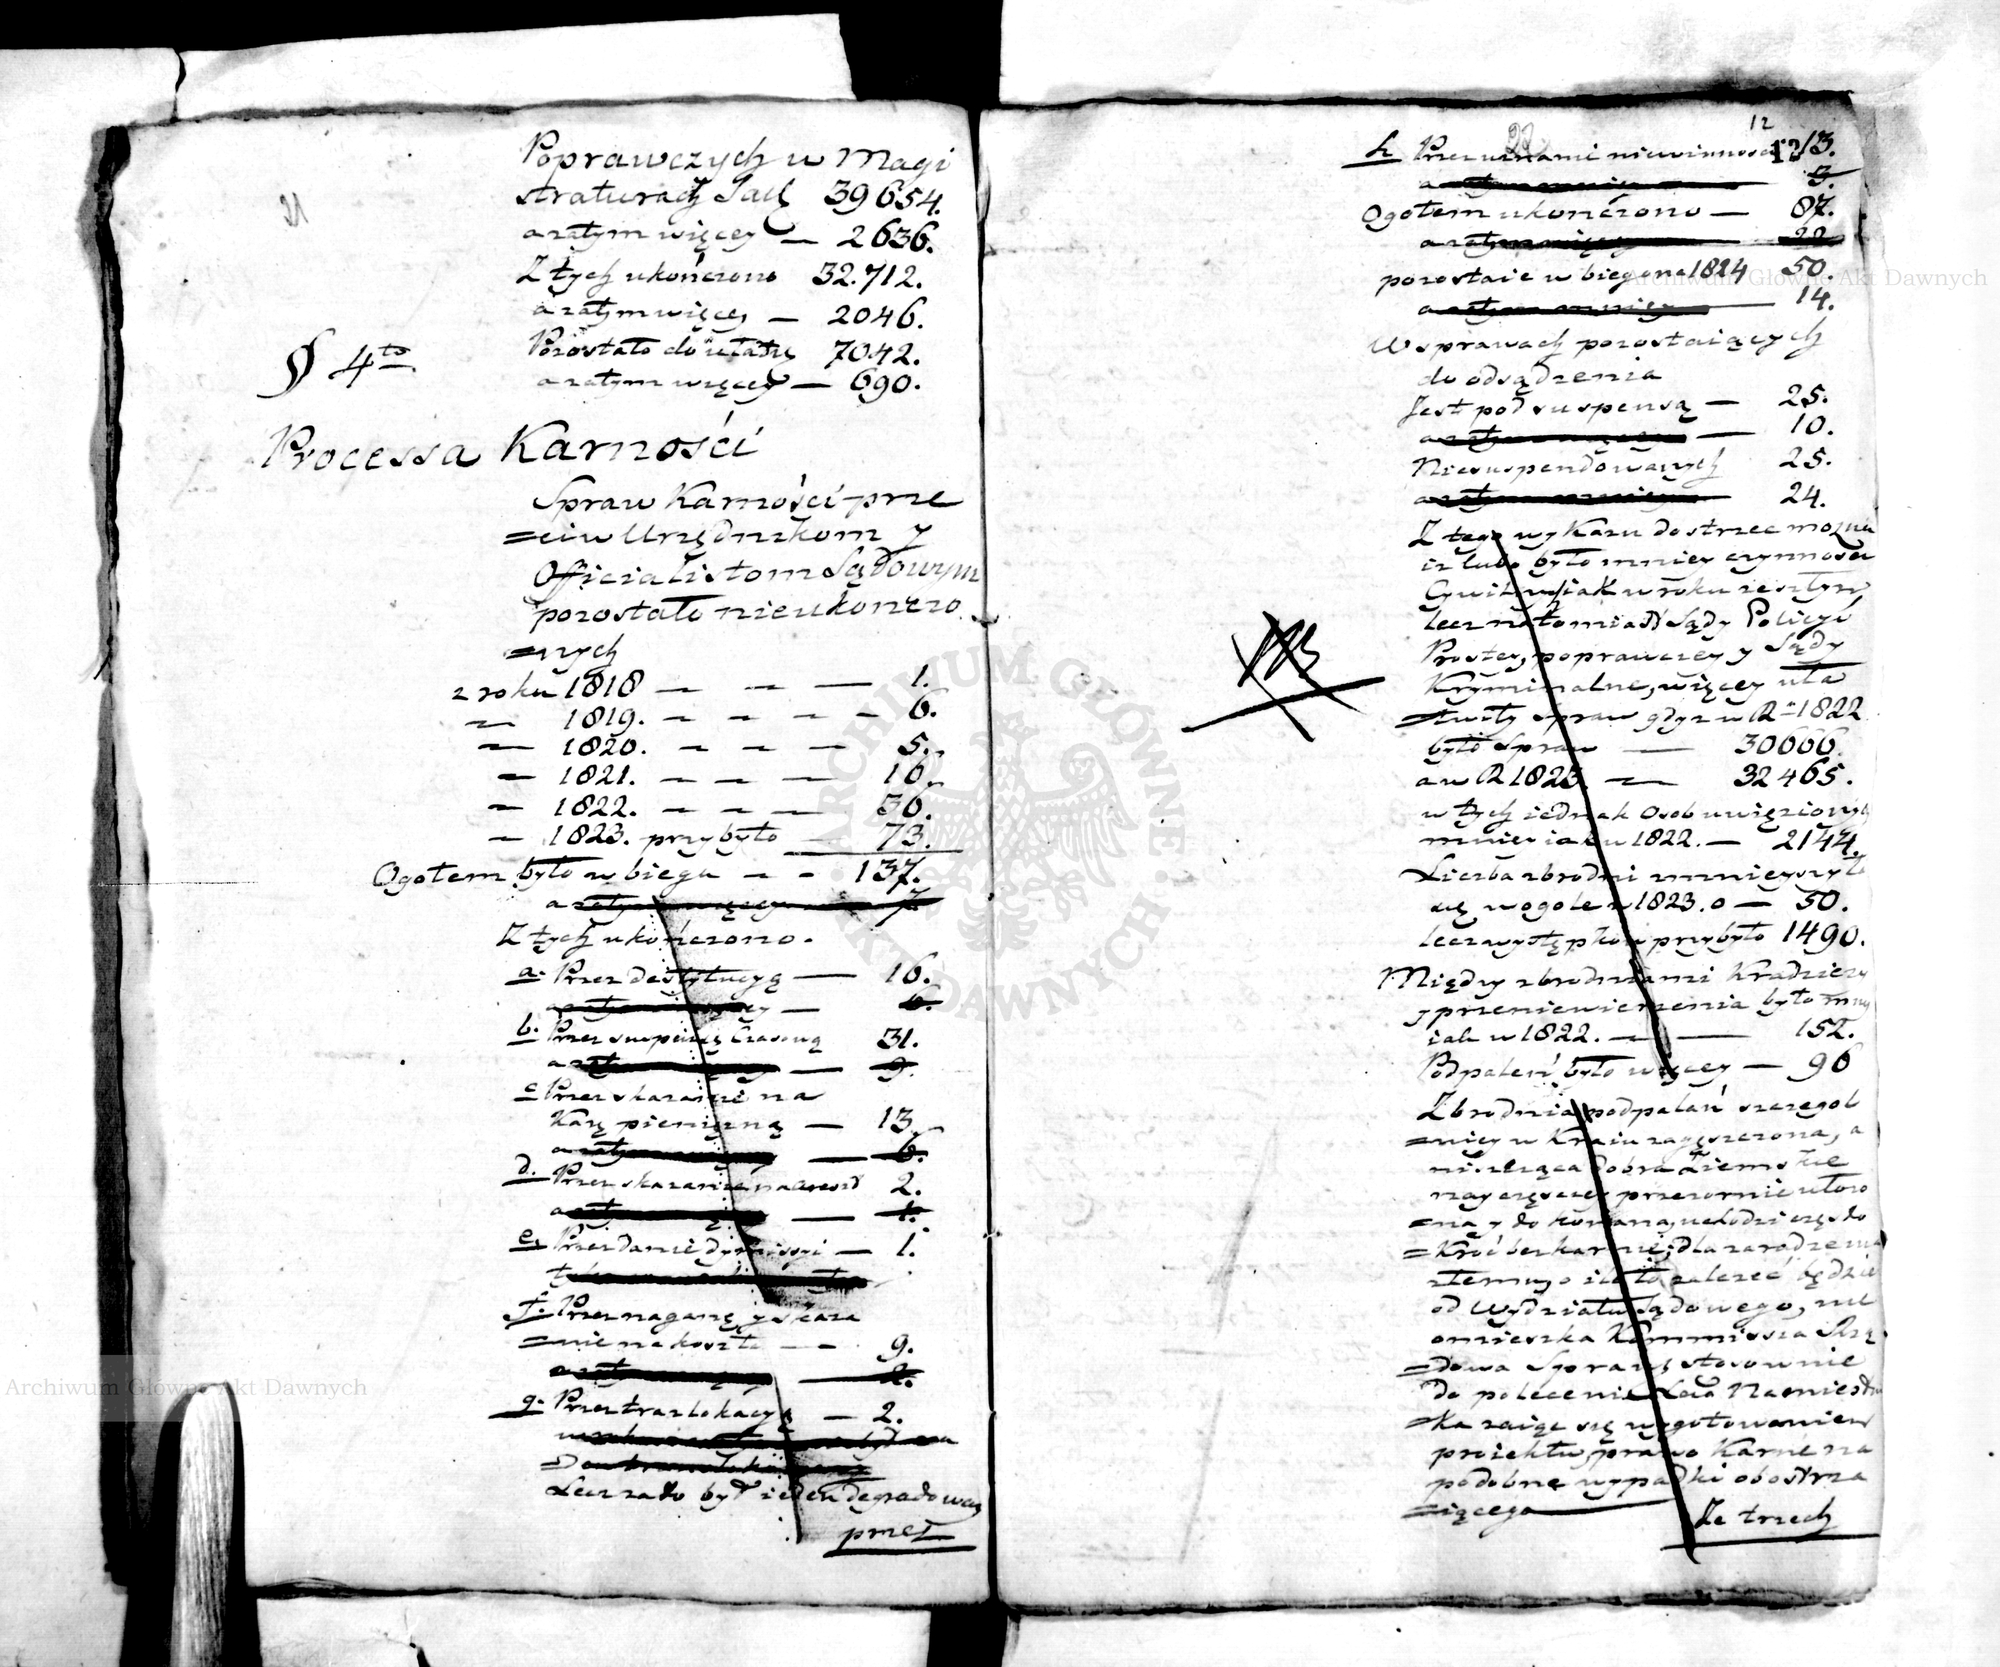 21
Poprawczych w Magi
straturach Sąd. 39654.
a zatym więcey — 2636.
Z tych ukończono 32.712.
a zatym więcey — 2046.
Pozostało do ułatw. 7042.
a zatym więcey — 690.
§ 4to
Processa Karności
Spraw Karności prze
=ciw Urzędnikom y
Officialistom Sądowym
pozostało nieukończo
=nych
z roku 1818 — — — 1.
— 1819. — — — — 6.
— 1820. — — — 5.
— 1821. — — — 16.
— 1822. — — — 36.
— 1823. przybyło — 73.
Ogołem było w biegu — — 137.
a zatym więcey 7.
Z tych ukończono.
a. Przez destytucyą — 16.
a zatym więcey — 6.
b. Przez suspensę czasową 31.
a zatym — 9.
c Przez skazanie na
Karę pieniężną — 13.
a zatym — 6.
d. Przez skazanie na areszt 2.
a zatym — 1.
e. Przez danie dymissyi — 1.
f. Przez naganę y skaza
=nie na koszta — — 9.
a zatym — 2.
g. Przez translokacyą — 2.
Lecz zato był ieden degradowany
przez
12
22
13
h Przez uznanie niewinności 13.
a zatym 3.
Ogołem ukończono — 87.
a zatym więcey 22
pozostaie w biegu na 1824 50.
a zatym mniey — 14.
W sprawach pozostaiących
do odsądzenia
Jest pod suspensą — 25.
a zatym więcey — 10.
Niesuspendowanych 25.
a zatym mniey 24.
Z tego wykazu dostrzec można
iż lubo było mniey czynności
Cywilnych iak w roku zeszłym
lecz natomiast Sądy Policyi
Prostey, poprawczey y Sądy
Kryminalne, więcey uła
=twiły spraw gdyż w R. 1822
było Spraw — 30066.
a w R 1823. — 32465.
w tych iednak Osob uwięzionych
mniey iak w 1822. — 2144.
Liczba zbrodni zmnieyszyła
się w ogole w 1823. o — 50.
lecz występkow przybyło 1490.
Między zbrodniami Kradzieży
y przeniewierzenia było mniey
iak w 1822. — — 152.
Podpaleń było więcey — 96
Zbrodnia podpalań szczegol
=niey w Kraiu zagęszczona, a
niszcząca dobra Ziemskie
nayczęściey przezornie ułożo
=na y dokonana, uchodzi często
=kroć bezkarnie; dla zaradzenia
złemu, o ile to zależeć będzie
od Wydziału Sądowego, nie
omieszka Kommissya Rzą
=dowa Sprawę stosownie
do polecenia Xcia Namiestni
=ka zaiąć się wygotowaniem
proiektu prawo Karne na
podobne wypadki obostrza
=iącego
Ze trzech
Archiwum Główne Akt Dawnych
Archiwum Główne Akt Dawnych
ARCHIWUM GŁÓWNE AKT DAWNYCH